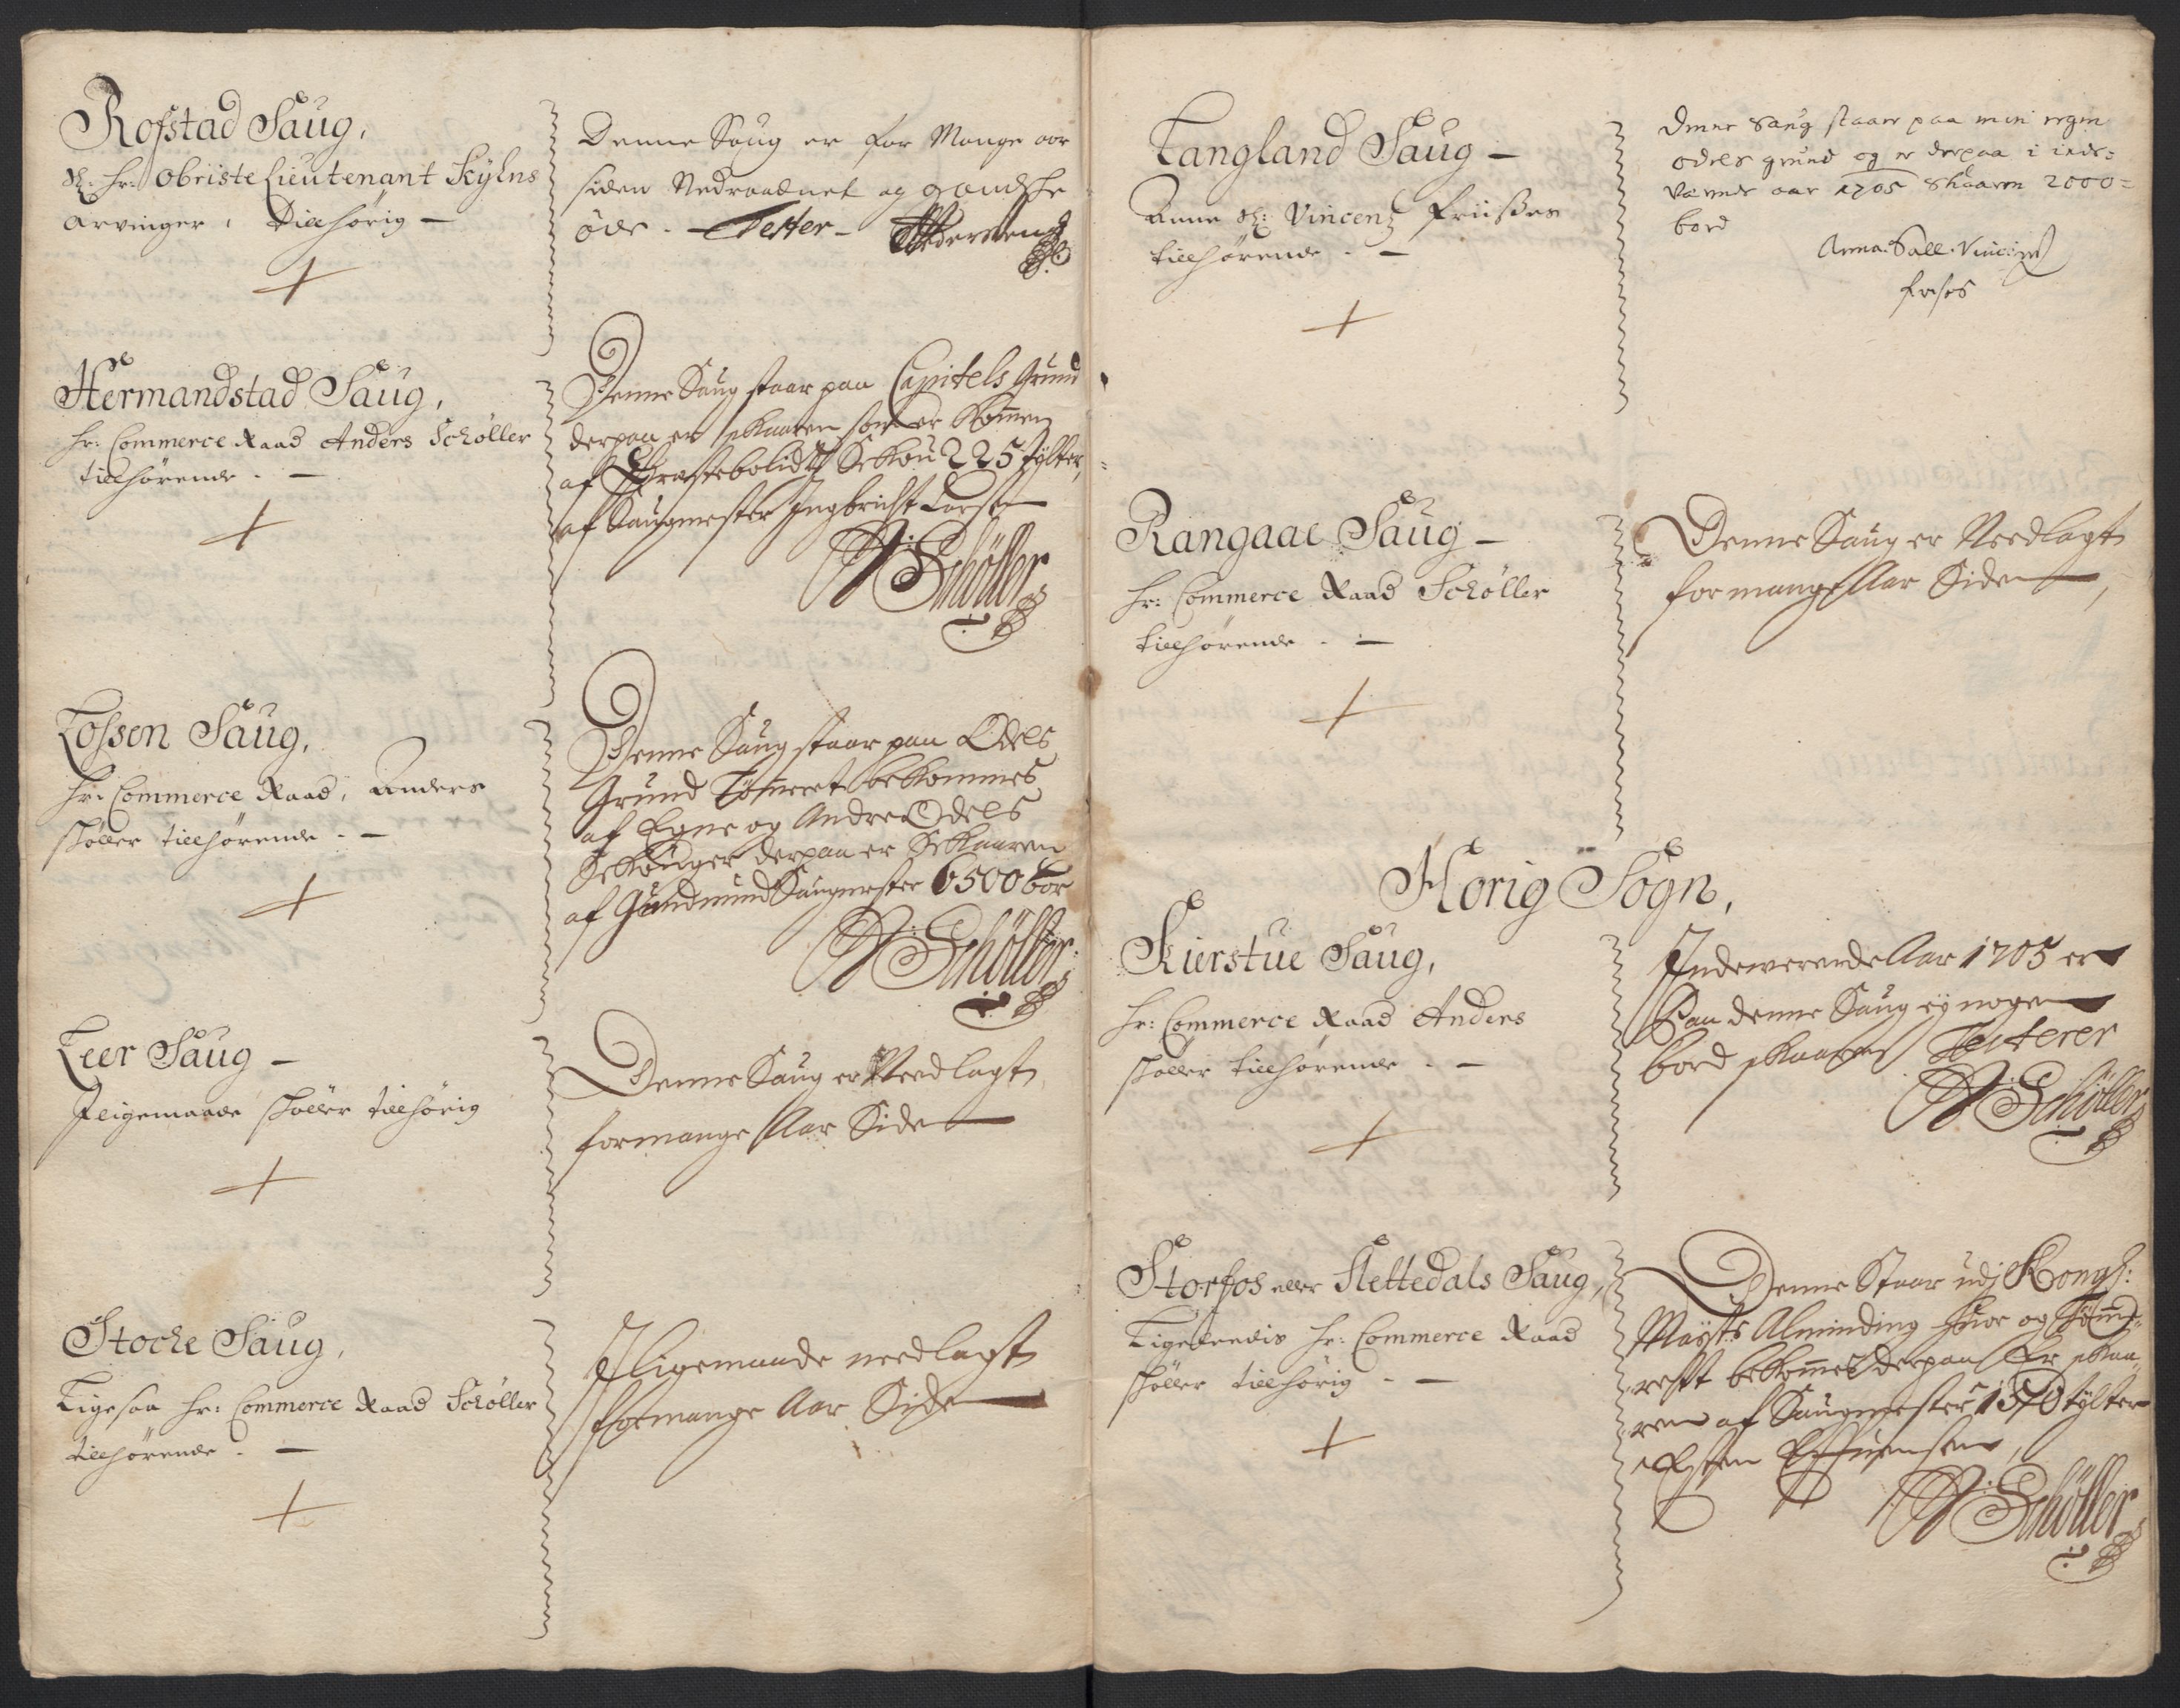 Rofstad Saug,
Sl: Hr: Obriste Lieutenant Kÿlns
arvinger, Tilhørig —
Denne Saug er for Mange aar
siden Nedraadnet og gandske
øde. Tester
Hermandstad Saug,
Hr: Commerce Raad Anders Schøller
tilhørende. —
Denne Saug staar paa Capitels Grund
derpaa er skaaren som er kommen
af Skou 225 tylter,
af Saugmester Ingbricht Larsen
A: Schøller
Fossen Saug,
Hr: Commerce Raad, Anders
skøller tilhørende. —
Denne Saug staar paa Odels
Grund Tømeret bekommes
af Egne og Andre Odels
Skouger derpaa er Skaaren
af Gundmund Saugmester 6500 bor
A: Schøller
Leer Saug —
Jligemaade skøller tilhørig
Denne Saug er Needlagt
for mange Aar Siden
Stocke Saug,
Ligesaa Hr: Commerce Raad Schøller
tilhørende. —
Jligemaade needlagt
for mange Aar Siden
Tangland Saug —
Anne Sl: Vincentz Friises
tilhørende. —
Denne Saug staar paa min egen
odels grund og er derpaa i inde=
værende aar 1705 skaaren 2000=
bord
Anna Sall. Vincentz
frises
Rangaae Saug —
Hr: Commerce Raad Schøller
tilhørende. —
Denne Saug er Needlagt
for mange Aar Siden,
Horig Sogn,
Kierstue Saug,
Hr: Commerce Raad Anders
skøller tilhørende. —
Indeværende Aar 1705 er
Paa denne Saug eÿ nogen
bord skaaren Testerer
A: Schøller
Storfos eller Slettedals Saug,
Ligeledis Hr: Commerce Raad
skøller tilhørig. —
Denne Staar udj Kongl:
Maÿsts Alminding huor og Tøm̄e-
ret bekom̄es derpaa Er skaa-
ren af Saugmester 1570 tylter
Esten
A: Schøller